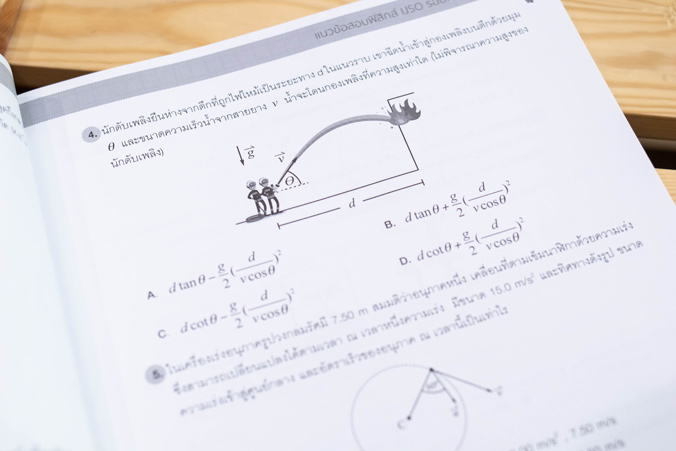 แนวข้อสอบฟิสิกส์ IJSO รอบ
4. นักดับเพลิงยืนห่างจากตึกที่ถูกไฟไหม้เป็นระยะทาง d ในแนวราบ เขาฉีดน้ำเข้าสู่กองเพลิงบนตึกด้วยมุม
θ และขนาดความเร็วน้ำจากสายยาง v น้ำจะโดนกองเพลิงที่ความสูงเท่าใด (ไม่พิจารณาความสูงของ
นักดับเพลิง)
g
v
θ
d
A. d tanθ − g/2 (d / v cosθ)²
B. d tanθ + g/2 (d / v cosθ)²
C. d cotθ − g/2 (d / v cosθ)²
D. d cotθ + g/2 (d / v cosθ)²
5. ในเครื่องเร่งอนุภาครูปวงกลมรัศมี 7.50 m สมมติว่าอนุภาคหนึ่ง เคลื่อนที่ตามเข็มนาฬิกาด้วยความเร่ง
ซึ่งสามารถเปลี่ยนแปลงได้ตามเวลา ณ เวลาหนึ่งความเร่ง มีขนาด 15.0 m/s² และทิศทางดังรูป ขนาด
ความเร่งเข้าสู่ศูนย์กลาง และอัตราเร็วของอนุภาค ณ เวลานี้เป็นเท่าไร
C
a
v
m/s² , 7.50 m/s
m/s